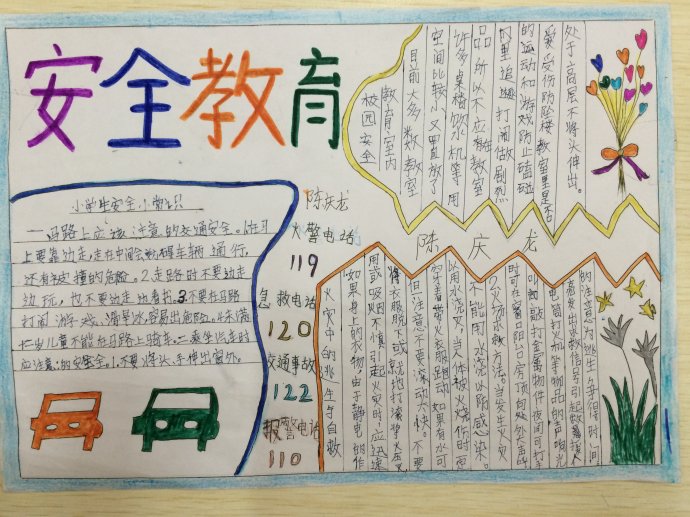 安全教育
小学生安全小常识
一.马路上应该注意的交通安全。1.在马
上要靠边走,走在中间会妨碍车辆通行,
还有被撞的危险。2.走路时不要边走
边玩,也不要边走边看书。3.不要在马路
打闹、游戏、滑旱冰,容易出危险。4.未满
岁儿童不能在马路上骑车。二.乘坐汽车时
应注意的安全。1.不要将头、手伸出窗外。
陈庆龙
火警电话
119
急救电话
120
交通事故
122
报警电话
110
校园安全
教育室内
目前,大多数教室
空间比较小,又置放了
许多桌椅、饮水机等用
品,所以不应在教室
里追逐、打闹,做剧烈
的运动和游戏,防止磕碰
受伤。防坠楼,教室里是否
处于高层,不将头伸出。
陈庆龙
火灾中的逃生与自救
如果身上的衣物,由于静电的作
用或吸烟不慎,引起火灾时,应迅速
将衣服脱下或就地打滚,将火压灭
但注意不要滚动太快。不要
穿着带火衣服跑动,如果有水可
以用水浇灭,当人体被火烧伤时,
不能用水浇,以防感染。
火场求救方法。当发生火灾
时,可在窗口、阳台、房顶
叫喊、敲打金属物件,夜间可打手
电筒、打火机等物品的声响、光
亮,发出求救信号,引起救援人
的注意,为逃生争得时间